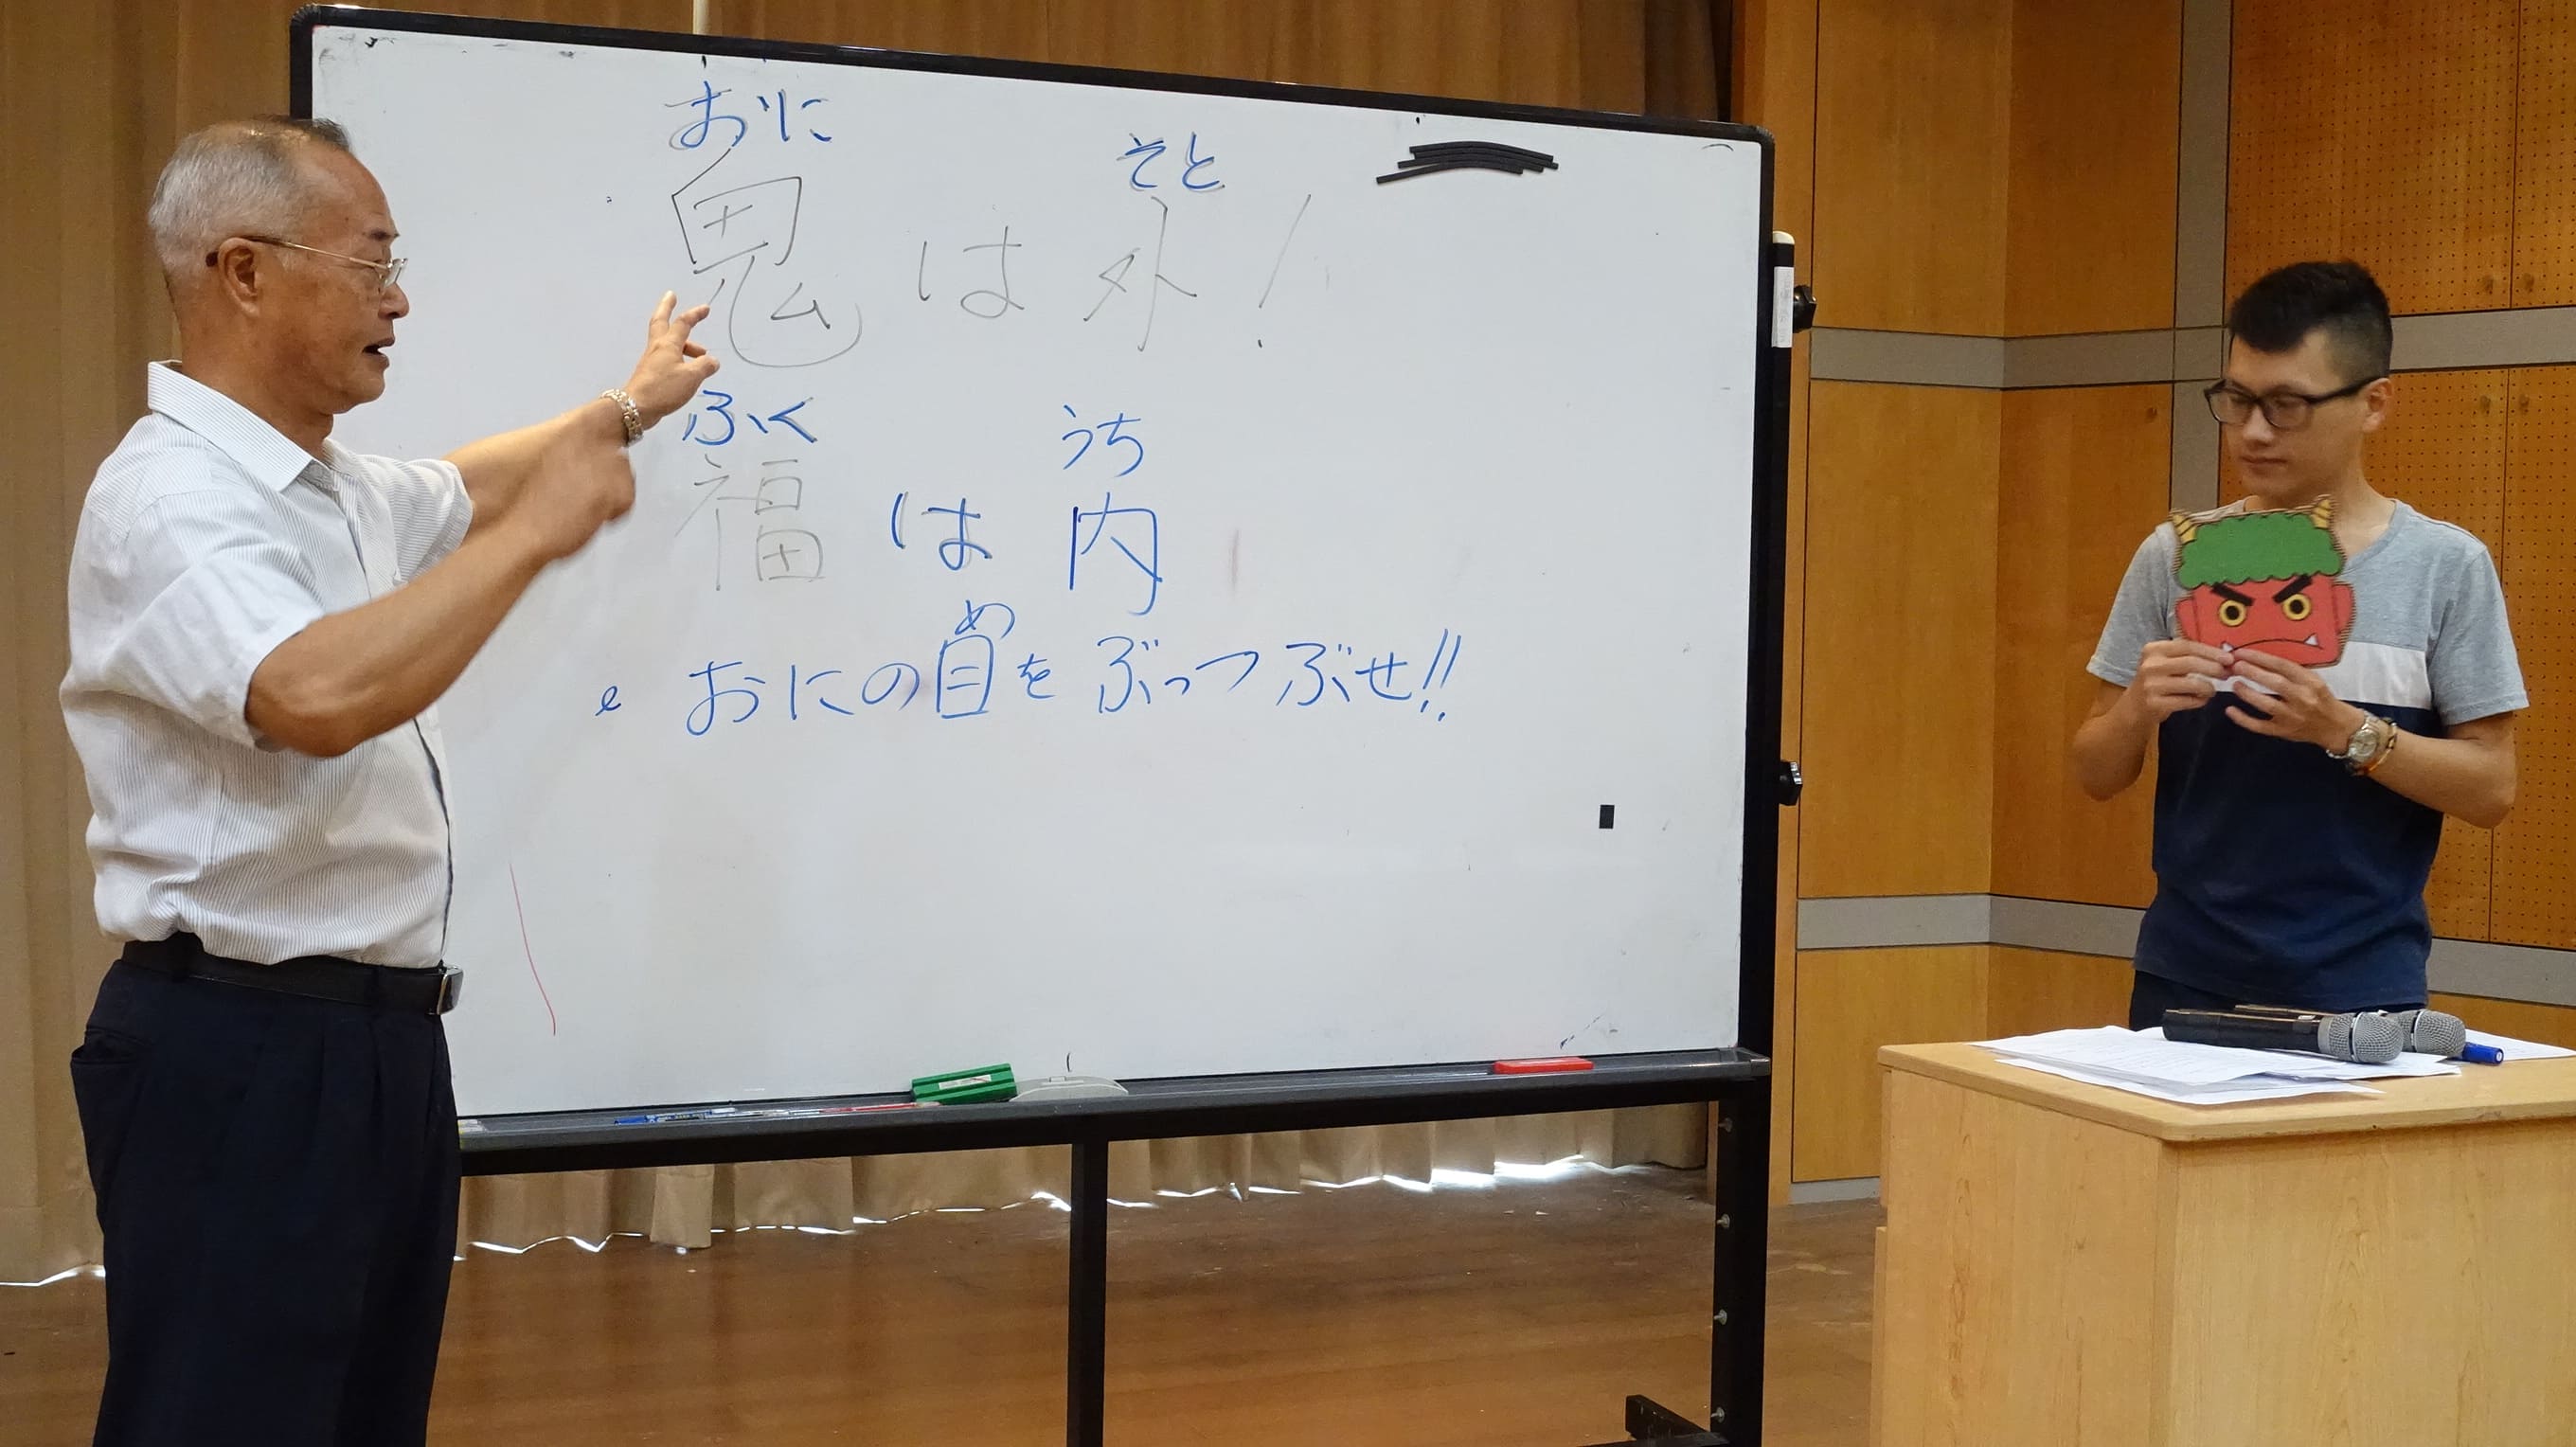 おに そと
鬼は外!
ふく うち
福は内
め
おにの目をぶっつぶせ!!